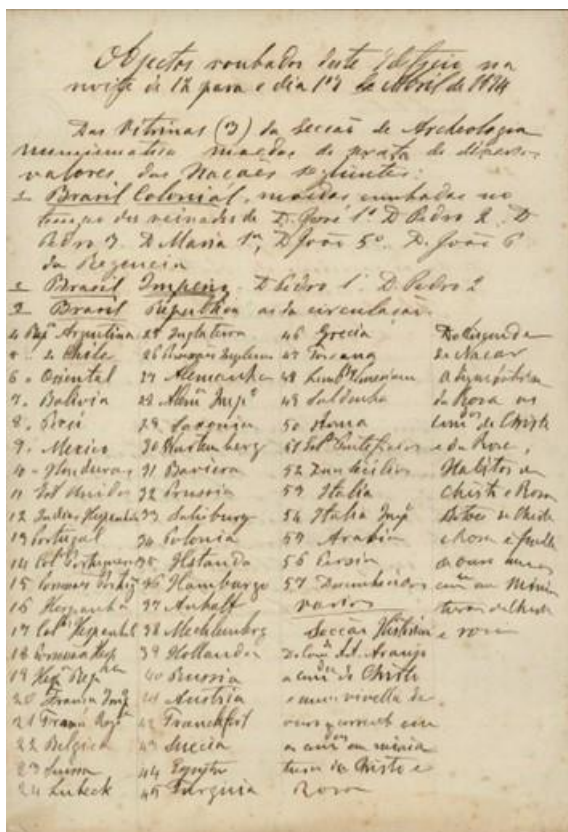 Objectos roubados deste Edificio na
noite de 12 para o dia 13 de Abril de 1894
Das Vitrinas (3) da Secção de Archeologia
numismatica moedas de prata de diversos
valores das Nações seguintes:
1 Brasil Colonial, moedas cunhadas no
tempo dos reinados de D. José 1º D Pedro 2 D
Pedro 3 D Maria 1ª, D João 5º D. João 6
da Regencia
2 Brasil Imperio D Pedro 1º D. Pedro 2
3 Brasil Republica as da circulação.
4 Repª Argentina
5 " Chile
6 " Oriental
7 " Bolivia
8 " Perú
9 " Mexico
10 " Honduras
11 Estº Unidos
12 Indias Hespanha
13 Portugal
14 Colª Portuguesas
15 Possessões
16 Hespanha
17 Colª Hespanhol
18 Possessões Hesp
19 Hespª Repca
20 França Impº
21 França Repª
22 Belgica
23 Suissa
24 Lubeck
25 Inglaterra
26 Possessões Inglesas
27 Alemanha
28 Alemª Impº
29 Saxonia
30 Wurtemberg
31 Baviera
32 Prussia
33 Salisburg
34 Polonia
35 Hstanda
36 Hamburgo
37 Anhalt
38 Mecklemberg
39 Hollanda
40 Russia
41 Austria
42 Franckfort
43 Suecia
44 Egypto
45 Turquia
46 Grecia
47 Toscana
48
49 Saldanha
50 Roma
51 Estº Pontificios
52
53 Italia
54 Italia Impº
55 Arabia
56 Persia
57 Desconhecidos
varios
Secção Historica
Do Consº Ant. Araujo
a comda de Christo
e uma
ouro
as em minia
tura de Christo e
Rosa
Do Visconde
de Nacar
a
da Rosa as
de Christo
e da Rosa,
Habitos de
Christo e Rosa
Botões de Christo
e Rosa e
de ouro
em minia
turas de Christo
e rosa